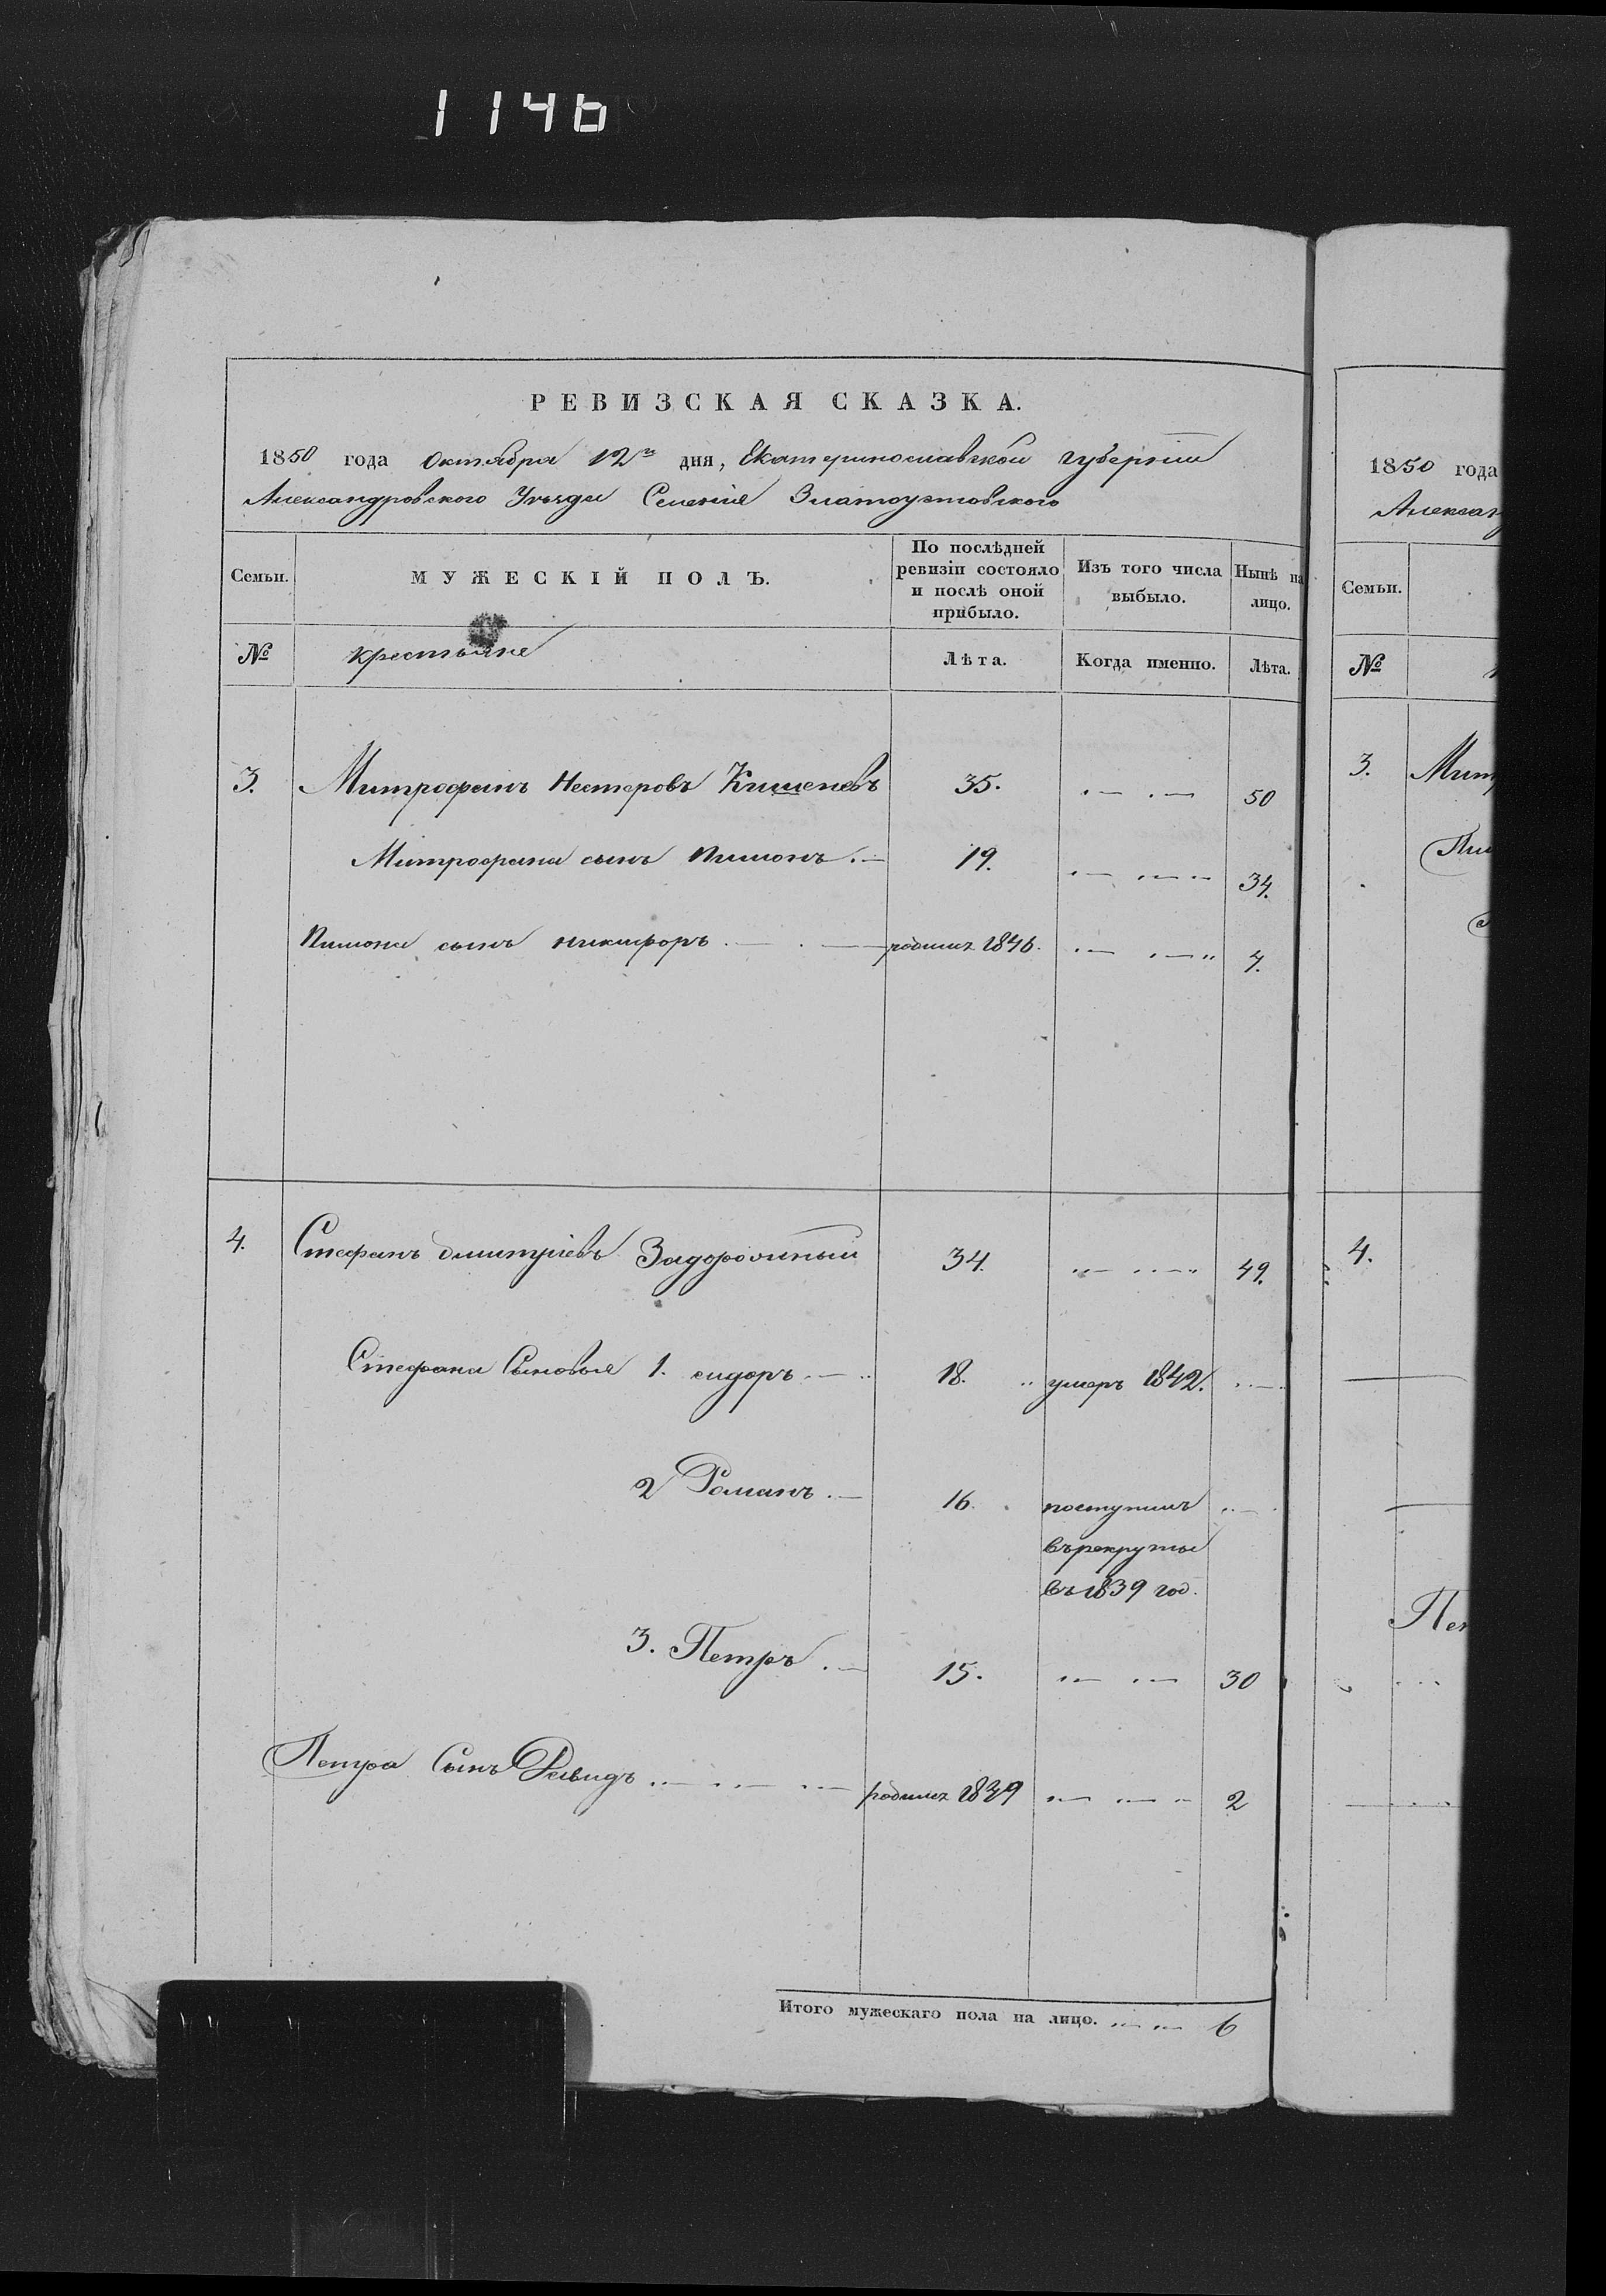 1146
РЕВИЗСКАЯ СКАЗКА.
1850 года Октября 12го дня, Екатеринославской губернии
Александровского Уѣзда Селенія Златоустовского
Семьи. МУЖЕСКІЙ ПОЛЪ. По послѣдней ревизіи состояло и послѣ оной прибыло. Изъ того числа выбыло. Нынѣ на лицо.
№ крестьяне Лѣта. Когда именно. Лѣта.
3. Митрофанъ Нестеровъ Кишеневъ 35. 50
Митрофана сынъ Пимонъ 19. 34.
Пимона сынъ никифоръ родился 1846. 4.
4. Стефанъ дмитріевъ Задорожный 34. 49.
Стефана Сыновья 1. сидоръ 18. умеръ 1842.
2 Романъ 16. поступилъ
въ рекруты
въ 1839 год.
3. Петръ 15. 30
Петра Сынъ родился 2
Итого мужескаго пола на лицо. 6
1850 года
Алексан
Семьи.
№
3. Мит
Пи
4.
Пе